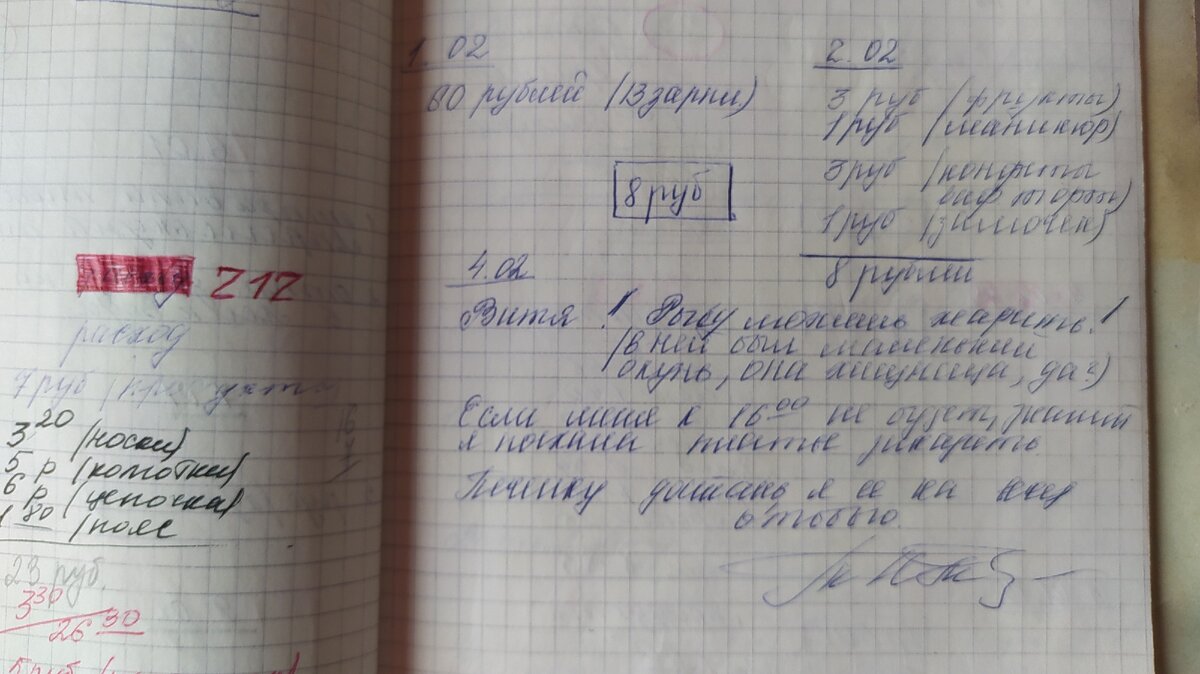 212
расход
7 руб (продукты
3 20 (носки)
5 р (колготки)
6 р (цепочка)
1 80 (пояс
23 руб.
3 30
26 30
5 руб
1.02
80 рублей (Взарпл.)
8 руб
2.02
3 руб (фрукты)
1 руб (маникюр)
3 руб (конфеты
торты)
1 руб
8 рублей
4.02
Витя! Рыбу можешь жарить!
(в ней был маленький
окунь, она хищница, да?)
Если меня к 16 00 не будет,
я поехала платье
Печенку достань я ее на
отобью.